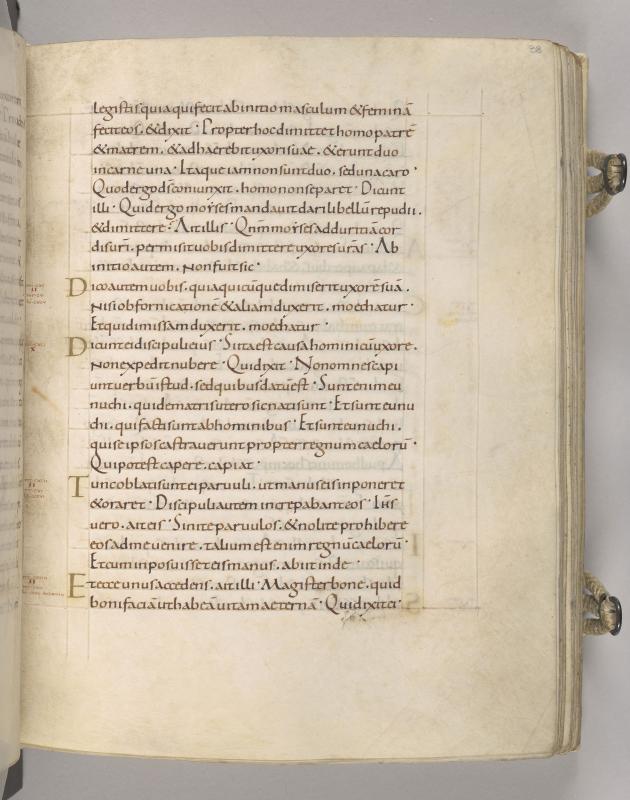 38
legistis quia qui fecit ab initio masculum & feminā
fecit eos. & dixit · Propter hoc dimittet homo patrē
& matrem. & adhaerebit uxori suae. & erunt duo
in carne una · Itaque iam non sunt duo. sed una caro ·
Quod ergo d̄s coniunxit. homo non separet · Dicunt
illi · Quid ergo moyses mandauit dari libellū repudii.
& dimittere · Ait illis · Qnm moyses ad duritiā cor
dis uri. permisit uobis dimittere uxores urās · Ab
initio autem. Non fuit sic ·
Dico autem uobis. quia quicūque dimiserit uxorē suā.
Nisi ob fornicationē & aliam duxerit. moechatur ·
Et qui dimissam duxerit. moechatur ·
Dicunt ei discipuli eius · Si ita est causa homini cū uxore.
Non expedit nubere · Qui dixit · Non omnes capi
unt uerbū istud. sed quibus datū est · Sunt enim eu
nuchi. qui de matris utero sic nati sunt · Et sunt eunu
chi. qui facti sunt ab hominibus · Et sunt eunuchi.
qui se ipsos castrauerunt propter regnum caelorū ·
Qui potest capere. capiat ·
Tunc oblati sunt ei paruuli. ut manus eis inponeret
& oraret · Discipuli autem increpabant eos · Ihs
uero. ait eis · Sinite paruulos. & nolite prohibere
eos ad me uenire. talium est enim regnū caelorū ·
Et cum inposuisset eis manus. abiit inde ·
Et ecce unus accedens. ait illi · Magister bone. quid
boni faciā ut habeā uitam aeternā · Qui dixit ei